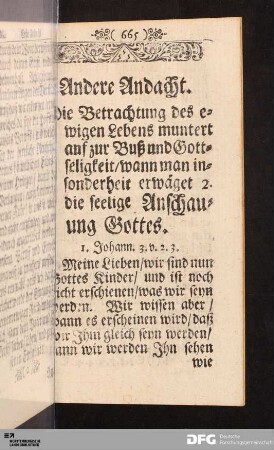 (665)
Andere Andacht.
Die Betrachtung des e-
wigen Lebens muntert
auf zur Buß und Gott-
seligkeit/wann man in-
sonderheit erwäget 2.
die seelige Anschau-
ung Gottes.
1. Johann. 3. v. 2. 3.
Meine Lieben/wir sind nun
Gottes Kinder/ und ist noch
nicht erschienen/was wir seyn
werden. Wir wissen aber/
wann es erscheinen wird/daß
wir Ihm gleich seyn werden/
dann wir werden Ihn sehen
wie
DFG Deutsche
Forschungsgemeinschaft